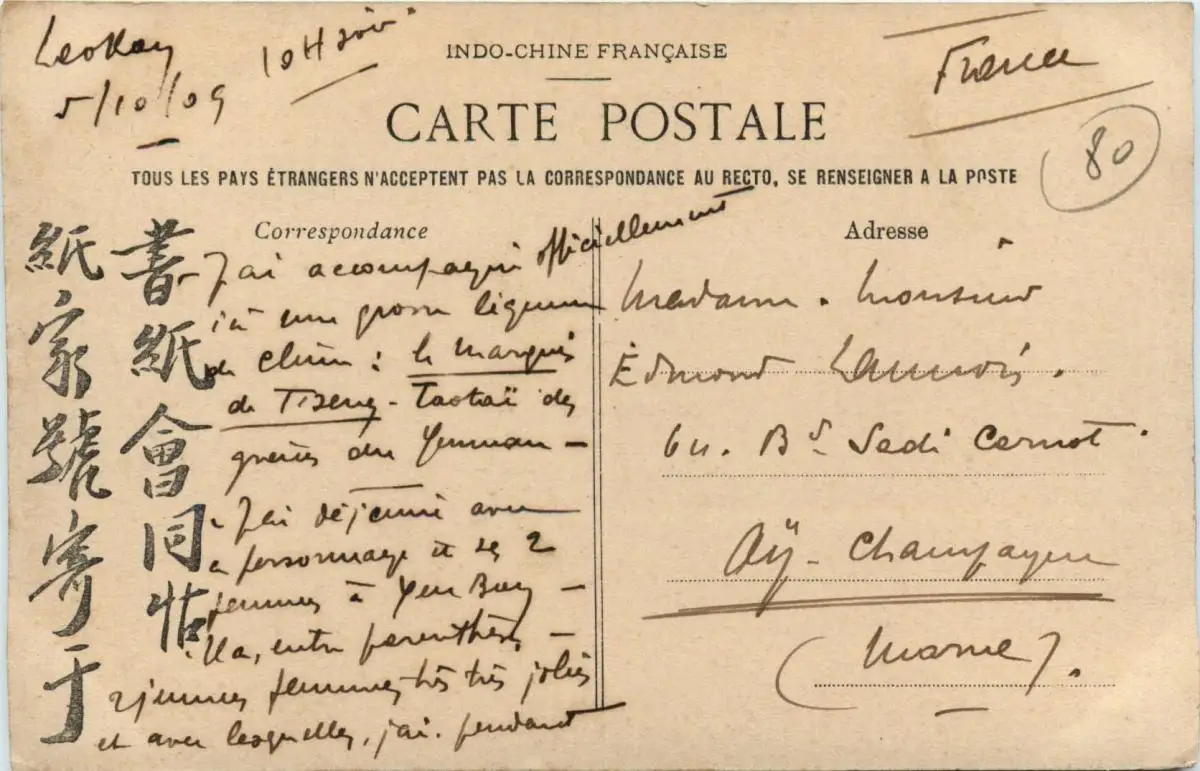 Leokay
5/10/09
10H soir
INDO-CHINE FRANÇAISE
CARTE POSTALE
France
80
TOUS LES PAYS ÉTRANGERS N'ACCEPTENT PAS LA CORRESPONDANCE AU RECTO, SE RENSEIGNER A LA POSTE
書紙會同帖
紙家號寄于
Correspondance
- J'ai accompagné officiellement
ici une grosse légume
de chine : le Marquis
de Tseng - Taotaï des
du Yunnan -
- J'ai déjeuné avec
ce personnage et ses 2
femmes à Yen Bay -
Il a, entre parenthèses, -
2 jeunes femmes très très jolies
et avec lesquelles, j'ai. pendant
Adresse
Madame. Monsieur
Edmond Launois.
64. Bd Sadi Carnot.
Aÿ - Champagne
(Marne).